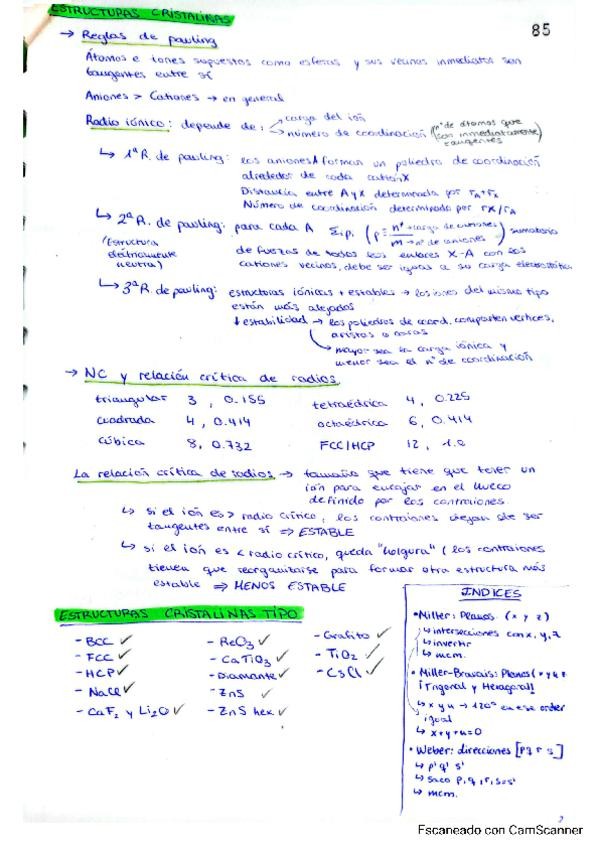 ESTRUCTURAS CRISTALINAS
85
→ Reglas de pauling
Átomos e iones supuestos como esferas y sus vecinos inmediatos son
tangentes entre sí
Aniones > Cationes → en general
Radio iónico: depende de: carga del ion
número de coordinación (nº de átomos que
son inmediatamente
tangentes)
↳ 1ª R. de pauling: los aniones A forman un poliedro de coordinación
alrededor de cada catión X
Distancia entre A y X determinada por rA+rX
Número de coordinación determinado por rX/rA
↳ 2ª R. de pauling: para cada A Σi pi (p = nº → carga de cationes / m → nº de aniones) sumatorio
(Estructura
eléctricamente
neutra)
de fuerzas de todos los enlaces X-A con los
cationes vecinos, debe ser igual a su carga electrostática
↳ 3ª R. de pauling: estructuras iónicas + estables → los iones del mismo tipo
están más alejados
↓ estabilidad → los poliedros de coord. comparten vertices,
aristas o caras
mayor sea la carga iónica y
menor sea el nº de coordinación
→ NC y relación crítica de radios
triangular 3, 0.155 tetraédrica 4, 0.225
cuadrada 4, 0.414 octaédrica 6, 0.414
cúbica 8, 0.732 FCC/HCP 12, 1.0
La relación crítica de radios → tamaño que tiene que tener un
ión para encajar en el hueco
definido por los contraiones.
↳ si el ión es > radio crítico, los contraiones dejan de ser
tangentes entre sí ⇒ ESTABLE
↳ si el ión es < radio crítico, queda "holgura" (los contraiones
tienen que reorganizarse para formar otra estructura más
estable ⇒ MENOS ESTABLE
ESTRUCTURAS CRISTALINAS TIPO
- BCC ✓ - ReO3 ✓ - Grafito ✓
- FCC ✓ - CaTiO3 ✓ - TiO2 ✓
- HCP ✓ - Diamante ✓ - CsCl ✓
- NaCl ✓ - ZnS ✓
- CaF2 y Li2O ✓ - ZnS hex. ✓
INDICES
• Miller: Planos (x y z)
↳ intersecciones con x, y, z
↳ invertir
↳ mcm.
• Miller-Bravais: Planos (x y u z
¡Trigonal y Hexagonal!
↳ x y u → 120° en ese orden
igual
↳ x+y+u=0
• Weber: direcciones [p q r s]
↳ p' q' s'
↳ saco p, q, r, s=s'
↳ mcm.
2
Escaneado con CamScanner